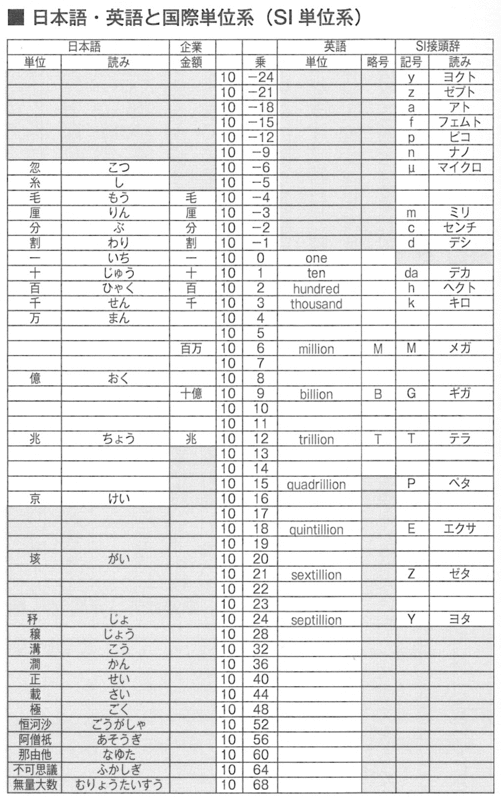 ■ 日本語・英語と国際単位系（SI 単位系）
日本語 企業 英語 SI接頭辞
単位 読み 金額 乗 単位 略号 記号 読み
10 −24 y ヨクト
10 −21 z ゼプト
10 −18 a アト
10 −15 f フェムト
10 −12 p ピコ
10 −9 n ナノ
忽 こつ 10 −6 μ マイクロ
糸 し 10 −5
毛 もう 毛 10 −4
厘 りん 厘 10 −3 m ミリ
分 ぶ 分 10 −2 c センチ
割 わり 割 10 −1 d デシ
一 いち 一 10 0 one
十 じゅう 十 10 1 ten da デカ
百 ひゃく 百 10 2 hundred h ヘクト
千 せん 千 10 3 thousand k キロ
万 まん 10 4
10 5
百万 10 6 million M M メガ
10 7
億 おく 10 8
十億 10 9 billion B G ギガ
10 10
10 11
兆 ちょう 兆 10 12 trillion T T テラ
10 13
10 14
10 15 quadrillion P ペタ
京 けい 10 16
10 17
10 18 quintillion E エクサ
10 19
垓 がい 10 20
10 21 sextillion Z ゼタ
10 22
10 23
秄 じょ 10 24 septillion Y ヨタ
穣 じょう 10 28
溝 こう 10 32
澗 かん 10 36
正 せい 10 40
載 さい 10 44
極 ごく 10 48
恒河沙 ごうがしゃ 10 52
阿僧祇 あそうぎ 10 56
那由他 なゆた 10 60
不可思議 ふかしぎ 10 64
無量大数 むりょうたいすう 10 68